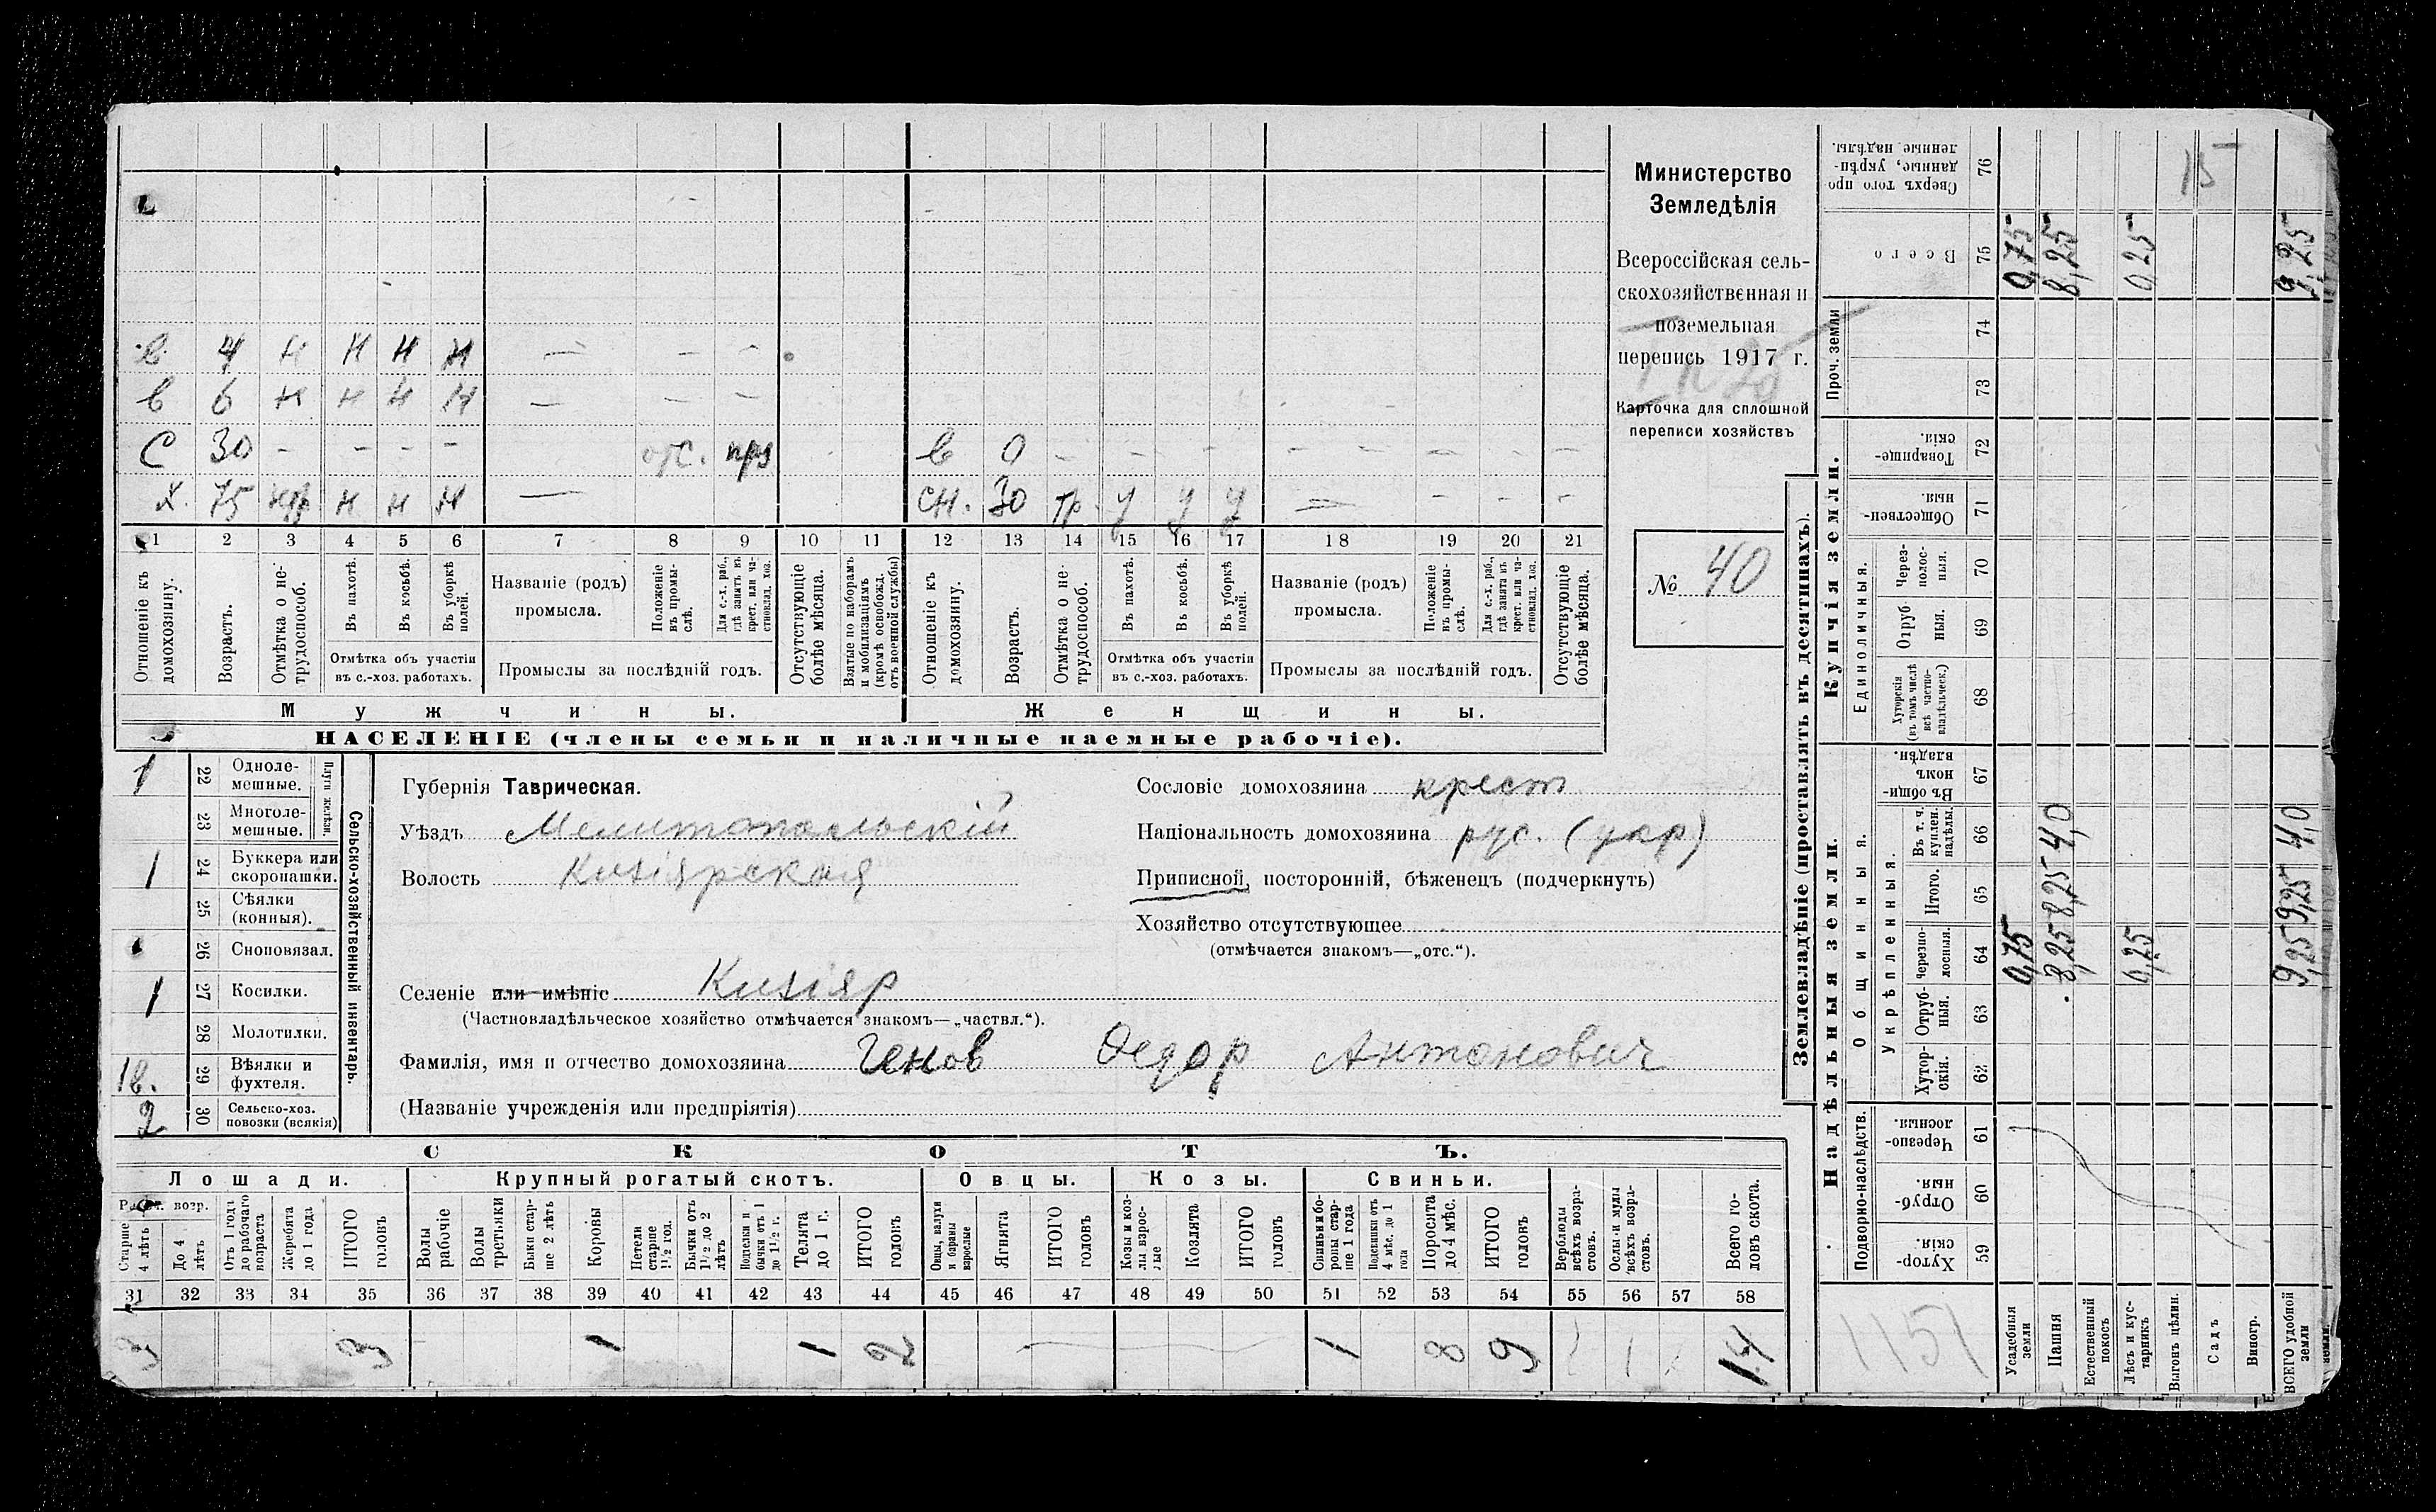 Министерство
Земледѣлія
Всероссійская сель-
скохозяйственная и
поземельная
перепись 1917 г.
Карточка для сплошной
переписи хозяйствъ
№ 40
в. 4 н н н н — – –
в 6 н н н н — – –
С 30 – – – – отс. в 0 – – – – – – – –
х. 75 нтр н н н — сн. 30 тр. у у у — – – –
1 2 3 4 5 6 7 8 9 10 11 12 13 14 15 16 17 18 19 20 21
Отношеніе къ домохозяину.
Возрастъ.
Отмѣтка о не-трудоспособ.
Въ пахотѣ.
Въ косьбѣ.
Въ уборкѣ полей.
Отмѣтка объ участіи въ с.-хоз. работахъ.
Названіе (родъ) промысла.
Положеніе въ промы-слѣ.
Для с.-х. раб., гдѣ занятъ въ крест. или ча-стновлад. хоз.
Промыслы за послѣдній годъ.
Отсутствующіе болѣе мѣсяца.
Взятые по наборамъ и мобилизаціямъ (кромѣ освобожд. отъ военной службы)
Отношеніе къ домохозяину.
Возрастъ.
Отмѣтка о не трудоспособ.
Въ пахотѣ.
Въ косьбѣ.
Въ уборкѣ полей.
Отмѣтка объ участіи въ с.-хоз. работахъ.
Названіе (родъ) промысла.
Положеніе въ промы-слѣ.
Для с.-х. раб., гдѣ занята въ крест. или ча-стновлад. хоз.
Промыслы за послѣдній годъ.
Отсутствующіе болѣе мѣсяца.
Мужчины. Женщины.
НАСЕЛЕНІЕ (члены семьи и наличные наемные рабочіе).
Сельско-хозяйственный инвентарь.
Плуги желѣзн.
1 22 Одноле-мешные.
23 Многоле-мешные.
1 24 Буккера или скоропашки.
25 Сѣялки (конныя).
26 Сноповязал.
1 27 Косилки.
28 Молотилки.
1в. 29 Вѣялки и фухтеля.
2 30 Сельско-хоз. повозки (всякія)
Губернія Таврическая.
Уѣздъ Мелитопольскій
Волость Кизіярская
Селеніе или имѣніе Кизіяр
(Частновладѣльческое хозяйство отмѣчается знакомъ—„частвл.“).
Фамилія, имя и отчество домохозяина Генов Федор Антонович
(Названіе учрежденія или предпріятія)
Сословіе домохозяина крест
Національность домохозяина рус. (укр)
Приписной, посторонній, бѣженецъ (подчеркнуть)
Хозяйство отсутствующее
(отмѣчается знакомъ—„отс.“).
СКОТЪ.
Лошади. Крупный рогатый скотъ. Овцы. Козы. Свиньи.
Рабоч. возр.
Старше 4 лѣтъ
До 4 лѣтъ
Отъ 1 года до рабочаго возраста
Жеребята до 1 года
ИТОГО головъ
Волы рабочіе
Волы третьяки
Быки стар-ше 2 лѣтъ
Коровы
Нетели старше 1½ год.
Бычки отъ 1½ до 2 лѣтъ
Подтелки и бычки отъ 1 до 1½ г.
Телята до 1 г.
ИТОГО головъ
Овцы, валухи и бараны взрослые
Ягнята
ИТОГО головъ
Козы и коз-лы взрос-лые
Козлята
ИТОГО головъ
Свиньи и бо-ровы стар-ше 1 года
Подсвинки отъ 4 мѣс. до 1 года
Поросята до 4 мѣс.
ИТОГО головъ
Верблюды всѣхъ возра-стовъ.
Ослы и мулы всѣхъ возра-стовъ.
Всего го-ловъ скота.
31 32 33 34 35 36 37 38 39 40 41 42 43 44 45 46 47 48 49 50 51 52 53 54 55 56 57 58
3 3 1 1 2 1 8 9 14
Землевладѣніе (проставлять въ десятинахъ).
Надѣльныя земли. Купчія земли. Проч. земли
Подворно-наслѣдств.
Общинныя.
Укрѣпленныя.
Единоличныя.
Хутор-скія. 59
Отруб-ныя. 60
Черезпо-лосныя. 61
Хутор-скія. 62
Отруб-ныя. 63
Черезпо-лосныя. 64
Итого. 65
Въ т. ч. куплен. надѣлы 66
Въ общи-номъ владѣн. 67
Хуторскія (въ томъ числѣ всѣ частно-владѣльческ.) 68
Отруб-ныя. 69
Через-полос-ныя. 70
Обществен-ныя. 71
Товарище-скія. 72
73
74
Всего 75
Сверхъ того про-данные, укрѣп-ленные надѣлы. 76
Усадебныя земли 0,75 0,75
Пашня 8,25 8,25 4,0 8,25
Естественный покосъ
Лѣсъ и кус-тарникъ 0,25 0,25
Выгонъ цѣлин.
Садъ
Виногр.
ВСЕГО удобной земли 9,25 9,25 4,0 9,25
15
1151